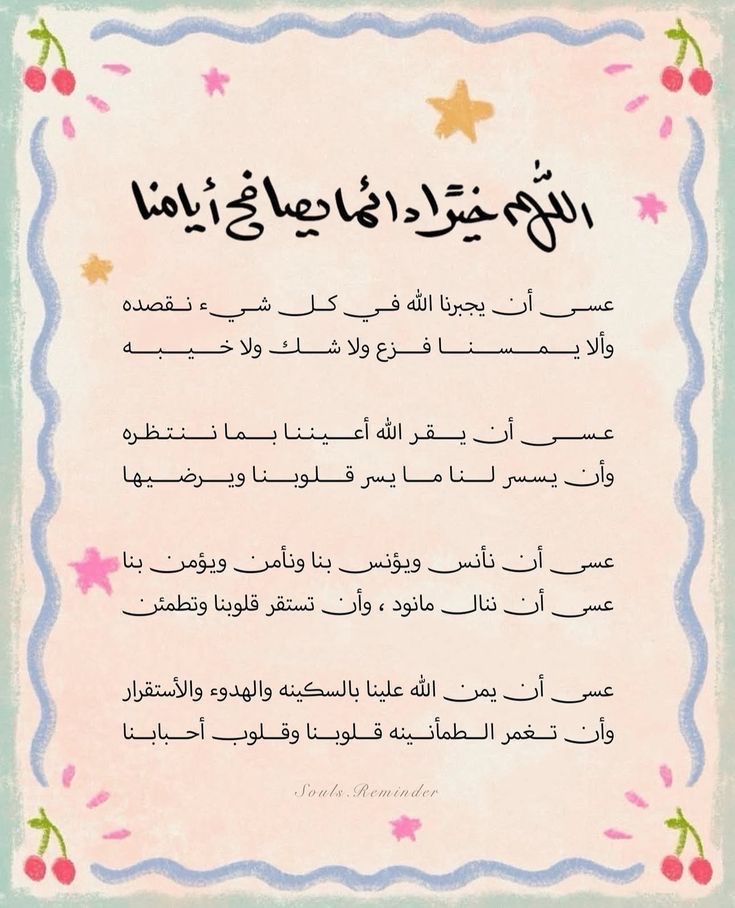 اللهم خيرًا دائما يصافح أيامنا
عسى أن يجبرنا الله في كل شيء نقصده
وألا يمسنا فزع ولا شك ولا خيبه
عسى أن يقر الله أعيننا بما ننتظره
وأن يسسر لنا ما يسر قلوبنا ويرضيها
عسى أن نأنس ويؤنس بنا ونأمن ويؤمن بنا
عسى أن ننال مانود ، وأن تستقر قلوبنا وتطمئن
عسى أن يمن الله علينا بالسكينه والهدوء والأستقرار
وأن تغمر الطمأنينه قلوبنا وقلوب أحبابنا
Souls.Reminder